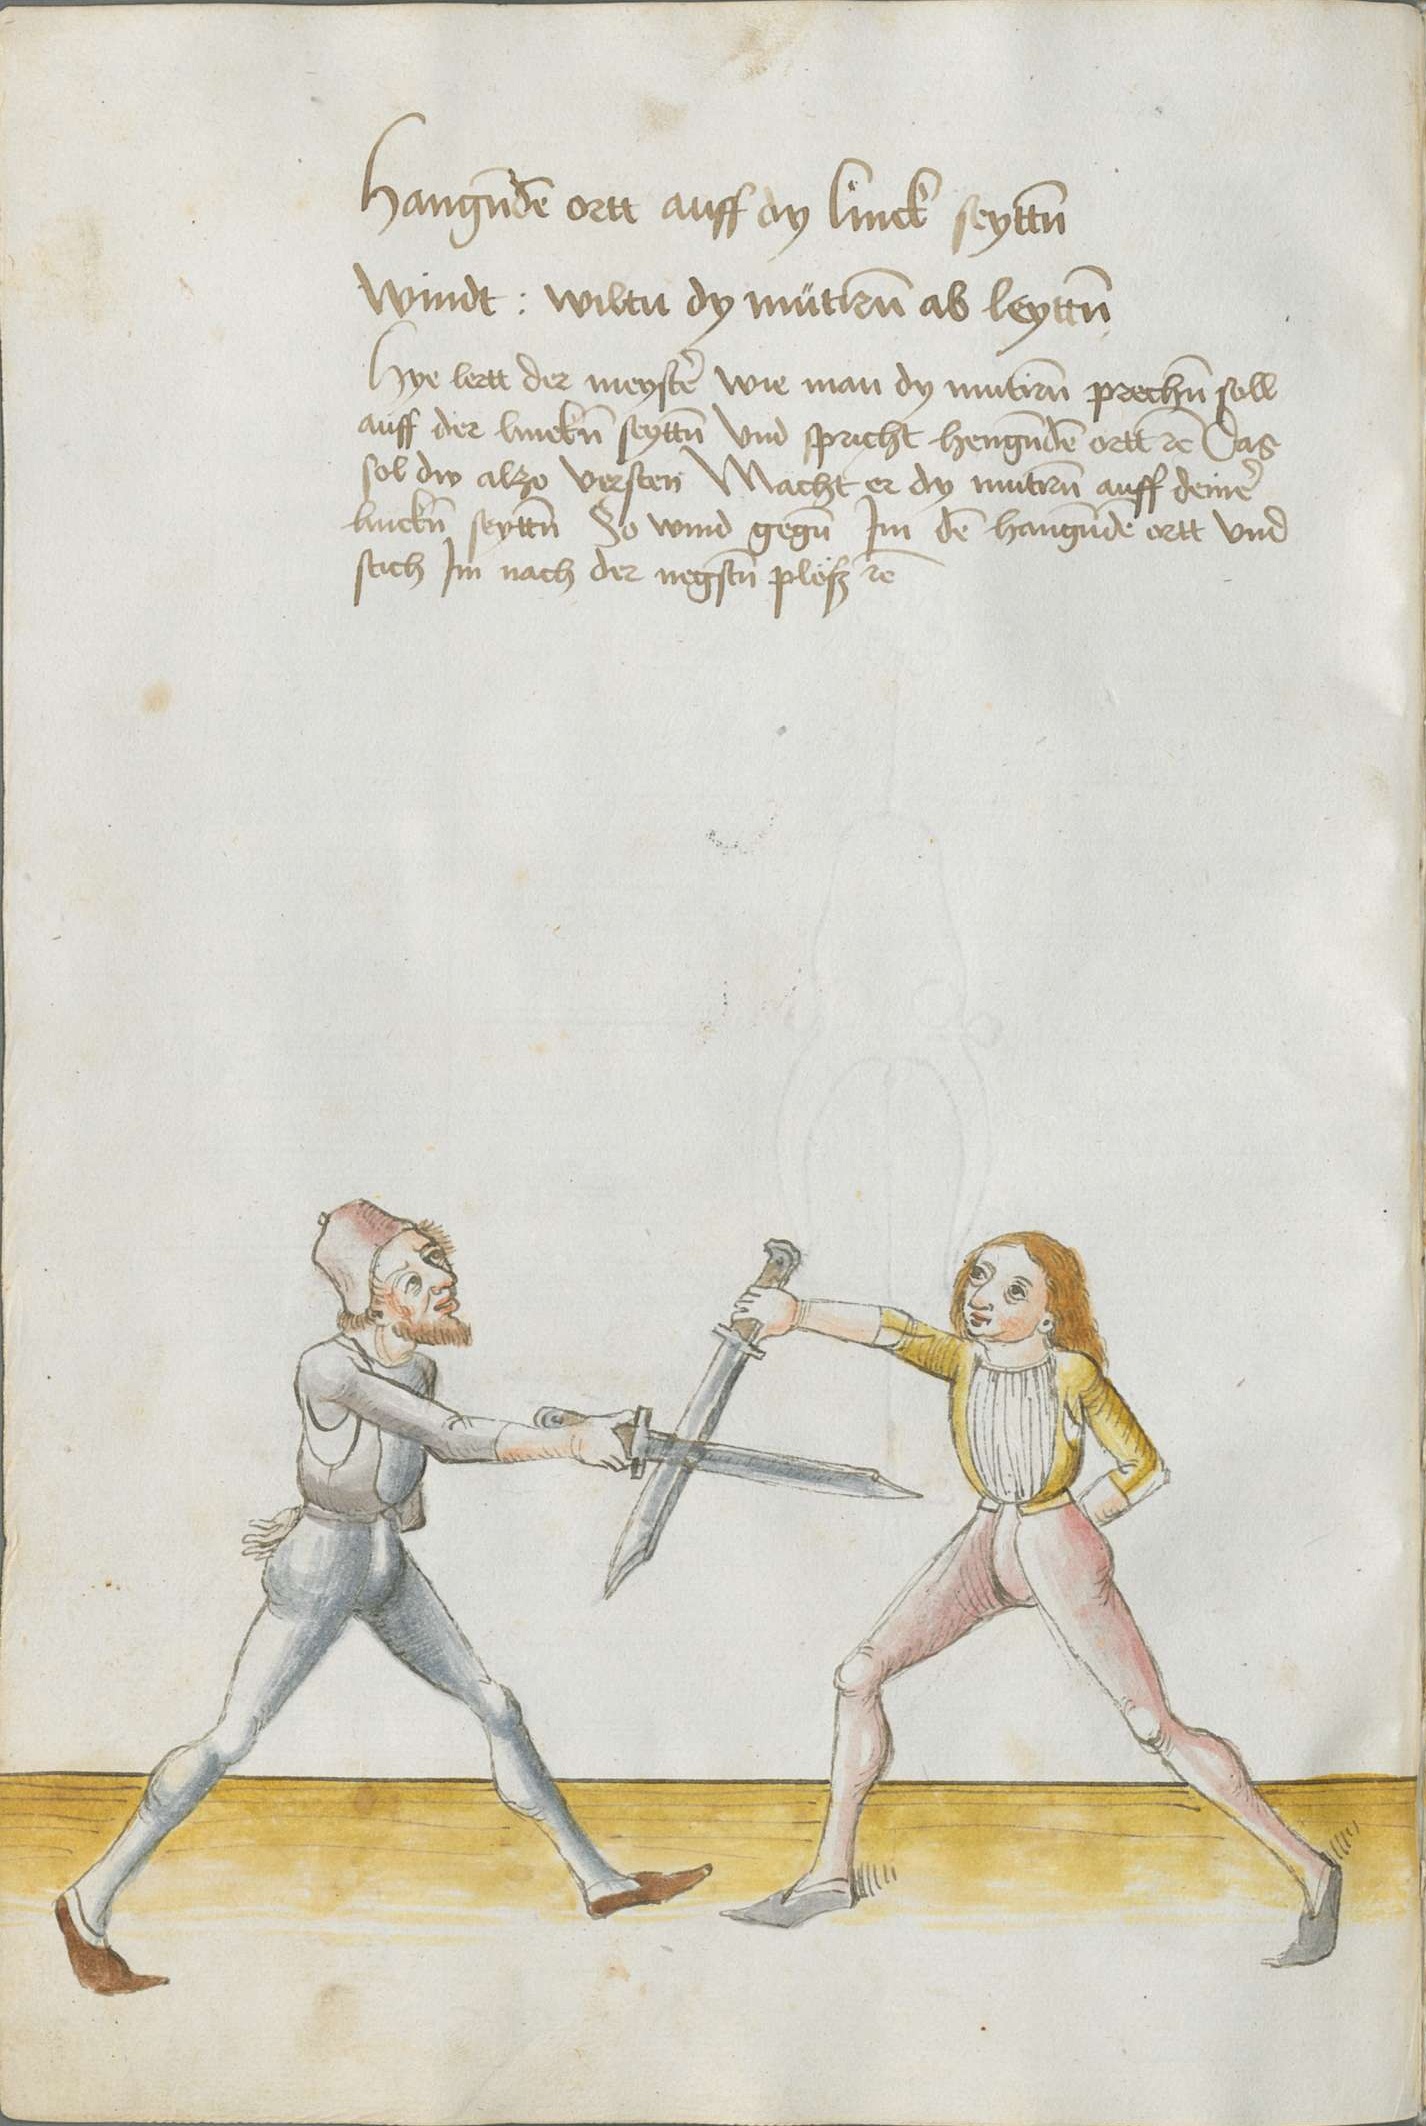 Hangu̅de̅ ortt auff dy linck seyttn̅
windt : wiltu dy mütirn̅ ab leyttn̅
Hye lertt der meyste͛ wie man dy mutirn̅ prechn̅ soll
auff der linckn̅ seyttn̅ Vnd spricht hengn̅de̅ ortt ꝛc̅ Das
sol dw alzo versten Macht er dy mutirn̅ auff deine͛
linckn̅ seyttn̅ So wind gegn̅ Im de̅ hangn̅de ortt vnd
stich Im nach der negstn̅ plösz ꝛc̅